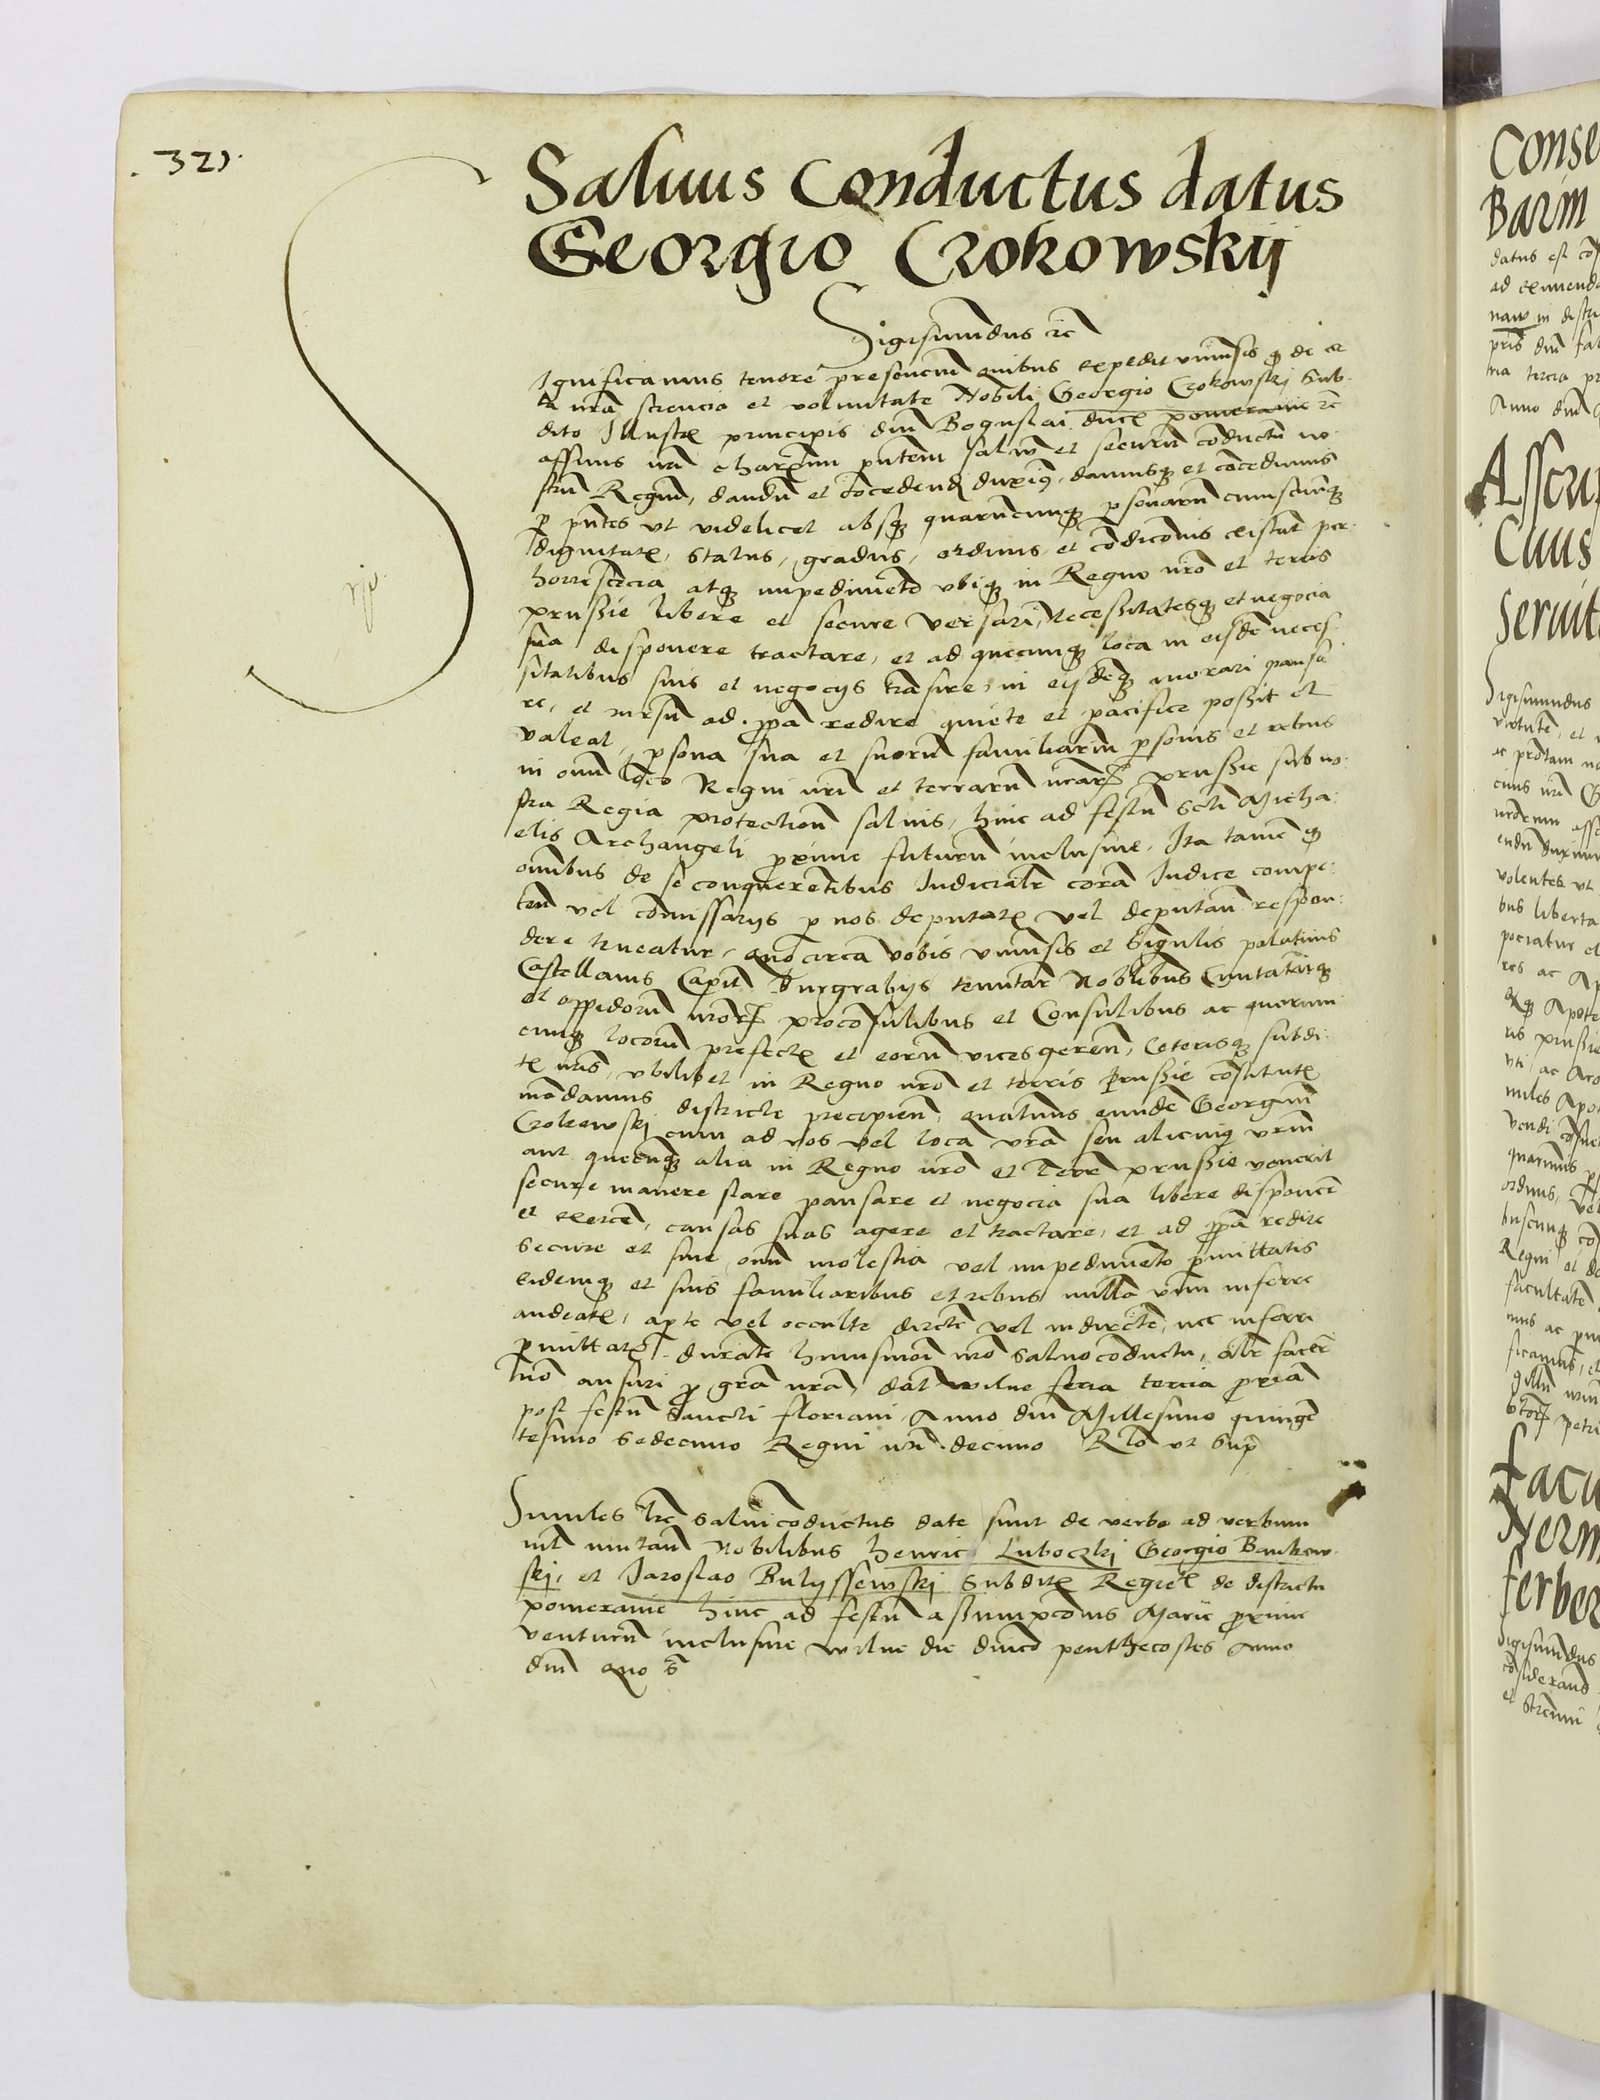 . 321.
Saluus Conductus datus
Georgio Czokowskij
Sigismundus etc
Significamus tenore presencium quibus expedit vniuersis quod de cer
ta nra sciencia et voluntate Nobili Georgio Czokowskj Sub
dito Illustris principis dni Boguslai ducis pomeranie etc
affinis nri charissimi pntem saluum et securum coductum no
strum Regium, dandum et cocedendum duximus, damusque et cocedimus
per pntes vt videlicet absque quarumcunque personarum cuiuscunque
dignitatis, status, gradus, ordinis, et condicionis existant per
horrescecia atque impedimeto vbique in Regno nro et terris
prussie libere et secure versari, Necessitatesque et negocia
sua disponere tractare, et ad quecunque loca in eisde neces
sitatibus suis et negocijs trasire, in eysdeque morari pausa
re, et rursum ad ppa redire quiete et pacifice possit et
valeat, persona sua et suorum familiarium personis et rebus
in omni loco Regni nri et terrarum nrarum prussie sub no
stra Regia protectione saluis, hinc ad festum scti Micha
elis Archangeli proxime futurum inclusiue. Ita tame quod
omnibus de se conqueretibus Iudicialr cora Iudice compe
ten vel comissarijs per nos deputatis vel deputan respon
dere teneatur, quocirca vobis vniuersis et singulis palatinis
Castellanis Capitan Burgrabijs tenutar Nobilibus Ciuitatumque
et oppidorum nrorum proconsulibus et Consulibus ac quorum
cunque locorum prefectis et eorum vicesgeren, Ceterisque subdi
tis nris, vbilibet in Regno nro et terris prussie constitutis
madamus districte precipien, quatinus eunde Georgium
Czokowskj cum ad vos vel loca vra seu alicuius vrum
aut quecunque alia in Regno nro et Terris prussie venerit
secure manere stare pausare et negocia sua libere disponere
et exercere, causas suas agere et tractare, et ad ppa redire
secure et sine omni molestia vel impedimeto permittatis
eidemque et suis familiaribus et rebus nulla vim inferre
audeatis, aperte vel occulte directe vel indirecte, nec inferri
permittatis durate huiusmodi nro saluoconductu, alr facere
no ausuri pro gra nra, dat wilne feria tercia proxima
post festum Sancti floriani Anno dni Millesimo quinge
tesimo sedecimo Regni nri decimo Rlo vt supra
Similes lre saluiconductus date sunt de verbo ad verbum
nil mutan Nobilibus henrico Luboczkj Georgio Bankow
skj, et Jaroslao Bulyssewskj subditis Regiis de districtu
pomeranie hinc ad festum assumpcionis Marie proxime
venturum inclusiue wilne die dnico penthecostes anno
dni quo s
Conse
Barm
datus est co
ad eximenda
naw in distri
pris dni fal
tria tercia pr
Anno dni
Asscri
Cuius
Seruit
Sigismundus
Facu
ferber
Sigismundus